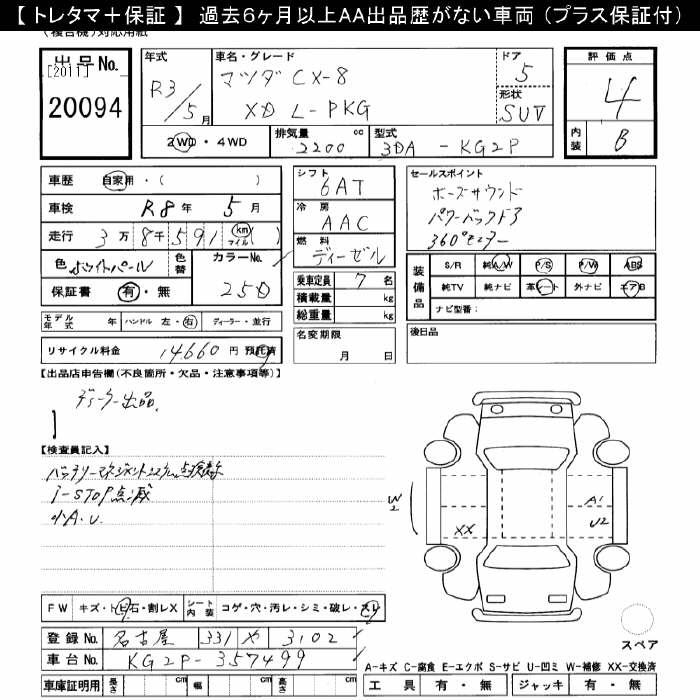 【 トレタマ＋保証 】 過去６ヶ月以上ＡＡ出品歴がない車両 (プラス保証付)
(複合機) 対応用紙
出品No. [2011] 20094
年式 R3/5月
車名・グレード マツダ CX-8 XD L-PKG
ドア 5
形状 SUV
評価点 4
内装 B
2WD・4WD
排気量 2200 cc
型式 3DA - KG2P
車歴 自家用・( )
車検 R8年 5月
走行 3万8千591 km マイル ( )
色 ホワイトパール 色替
カラーNo. 25D
保証書 有・無
モデル年式 年 ハンドル 左・右 ディーラー・並行
リサイクル料金 14660円 預託済
シフト 6AT
冷房 AAC
燃料 ディーゼル
乗車定員 7名
積載量 kg
総重量 kg
名変期限 月 日
セールスポイント
ボーズサウンド
パワーバックドア
360°モニター
装備品 S/R 純A/W P/S P/W ABS
純TV 純ナビ 革シート 外ナビ エアB
ナビ型番：
後日品
【出品店申告欄(不良箇所・欠品・注意事項等)】
ディーラー出品
【検査員記入】
i-STOP点滅
小A.U.
W2
XX
A1
U2
FW キズ・トビ石・割レX シート内装 コゲ・穴・汚レ・シミ・破レ・スレ
登録No. 名古屋 331 や 3102
車台No. KG2P-357499
車庫証明用 長さ cm 幅 cm 高さ cm
スペア
A-キズ C-腐食 E-エクボ S-サビ U-凹ミ W-補修 XX-交換済
工具 有・無 ジャッキ 有・無